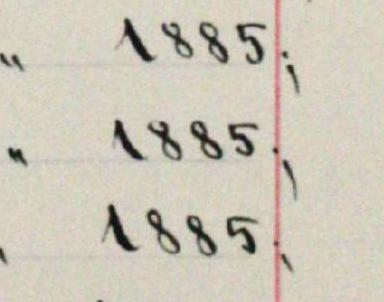 " 1885;
" 1885;
1885;